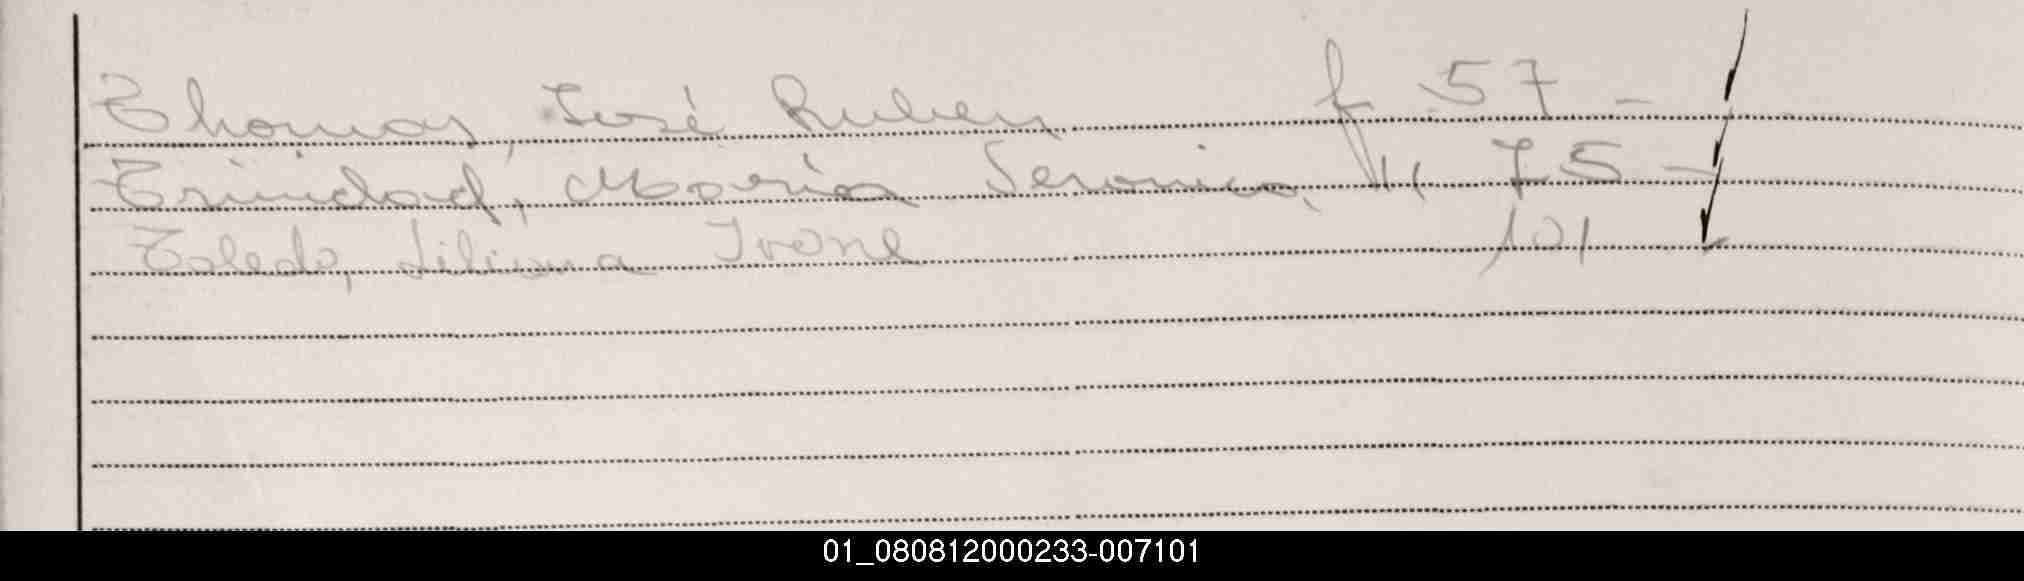 Thomas, José Ruben f 57 -
Trinidad, Maria Veronica, " 75 -
Toledo, Liliana Ivone 101
01_080812000233-007101